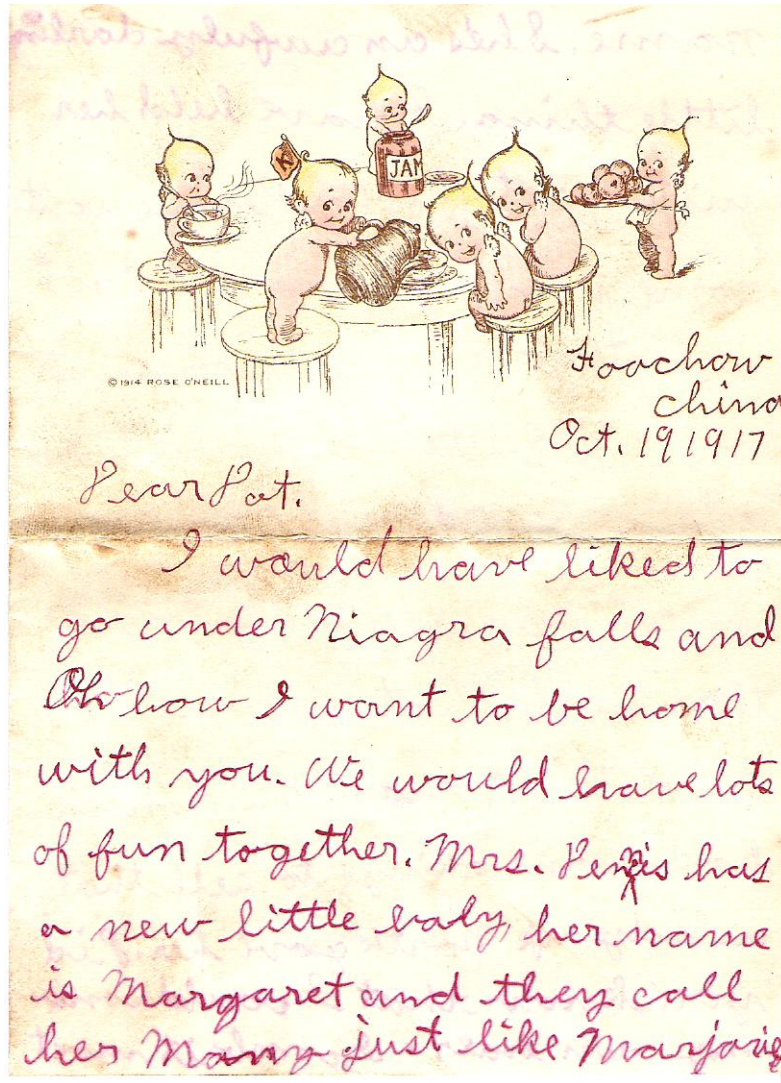 K
JAM
© 1914 ROSE O'NEILL
Foochow
China
Oct. 19 1917
Dear Pat.
I would have liked to
go under Niagra falls and
Oh how I want to be home
with you. We would have lots
of fun together. Mrs. Dennis has
a new little baby, her name
is Margaret and they call
her just like Marjorie